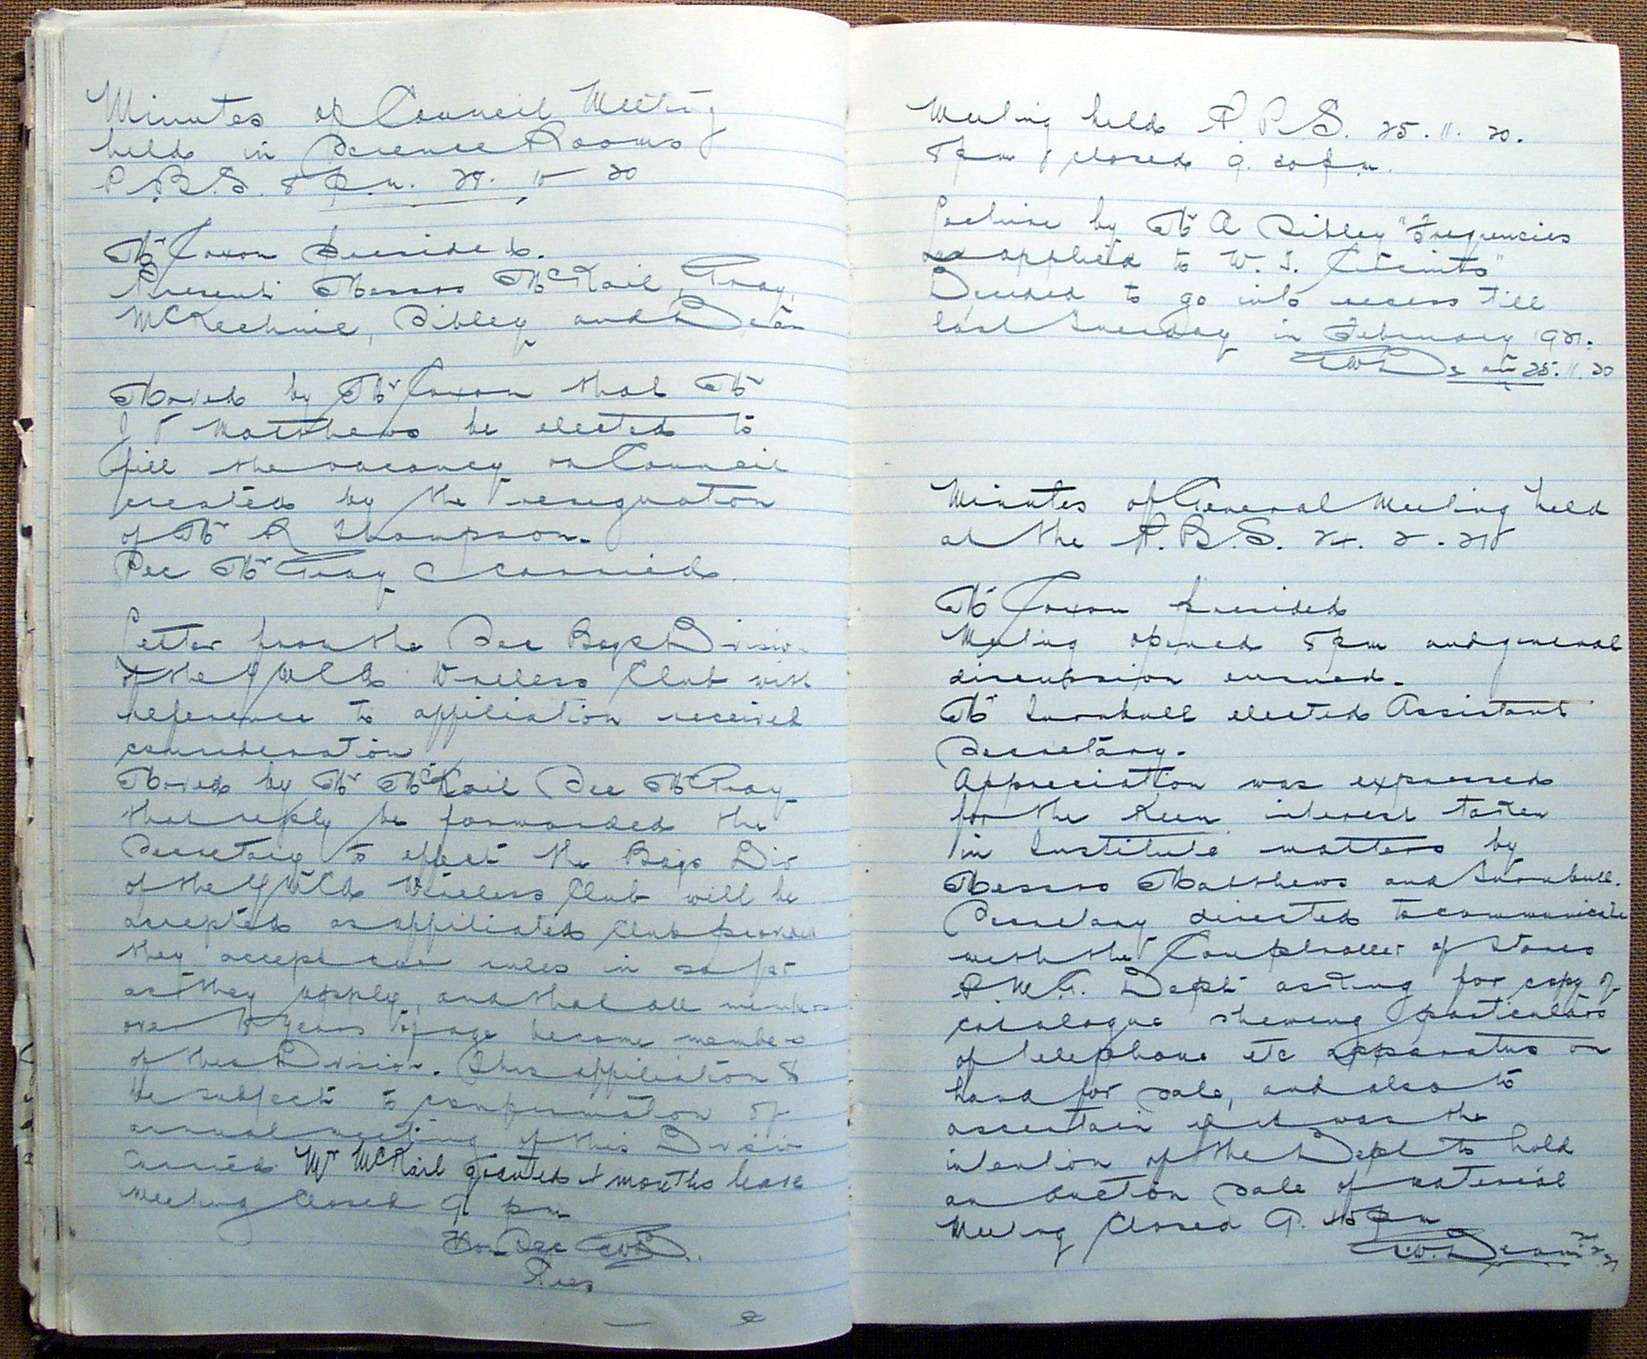 Minutes of Council Meeting
held in Science Rooms
P.B.S. 8 p.m. 20
Mr Coxon presided.
Present Messrs McKail, Gray,
McKechnie, Sibley and Dean
Moved by Mr Coxon that Mr
Matthews be elected to
fill the vacancy on Council
created by the resignation
of Mr R Thompson.
Sec Mr Gray Carried.
Letter from the Sec Boys Division
of the YMCA Wireless Club with
reference to affiliation received
consideration
Moved by Mr McKail Sec Mr Gray
that reply be forwarded the
Secretary to effect the Boys Div
of the YMCA Wireless Club will be
accepted as affiliated Club provided
they accept our rules in so far
as they apply, and that all members
over years of age become members
of this Division. This affiliation to
be subject to confirmation of
annual meeting of this Division
Carried. Mr McKail granted months leave
Meeting Closed 9 pm
Hon Sec CWD.
Pres
Meeting held P.S. 25.11.20.
8pm closed 9. pm.
Lecture by Mr A Sibley "Frequencies
as applied to W.T. Circuits"
Decided to go into recess till
last Tuesday in February 1921.
CWDean 25.11.20
Minutes of General Meeting held
at the P.B.S. 24.2.21
Mr Coxon presided
Meeting opened 8pm and general
discussion ensued.
Mr Turnbull elected Assistant
Secretary.
Appreciation was expressed
for the Keen interest taken
in Institute matters by
Messrs Matthews and Turnbull.
Secretary directed to communicate
with the Comptroller of Stores
P.M.G. Dept asking for copy of
catalogue shewing particulars
of telephone etc apparatus on
hand for sale, and also to
ascertain if it was the
intention of the Dept to hold
an auction sale of material
Meeting Closed 9.45pm
C.W.Dean